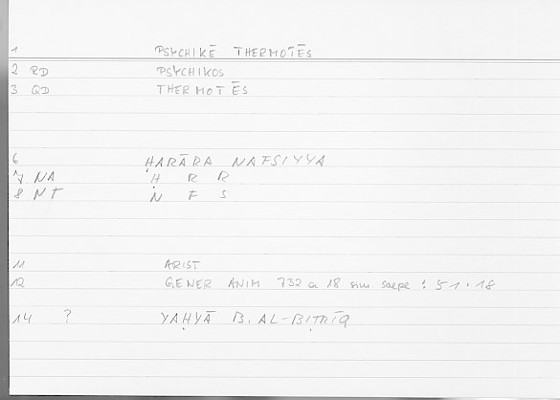 1 PSYCHIKĒ THERMOTĒS
2 RD PSYCHIKOS
3 QD THERMOTĒS
6 ḤARĀRA NAFSIYYA
7 NA Ḥ R R
8 NT N F S
11 ARIST
12 GENER ANIM 732 a 18 sim saepe : 51.18
14 ? YAḤYĀ B. AL-BIṬRĪQ